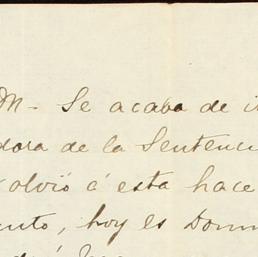 M- Se acaba de i
dora de la Sentenci
volvió á esta hace
ento, hoy es Domin